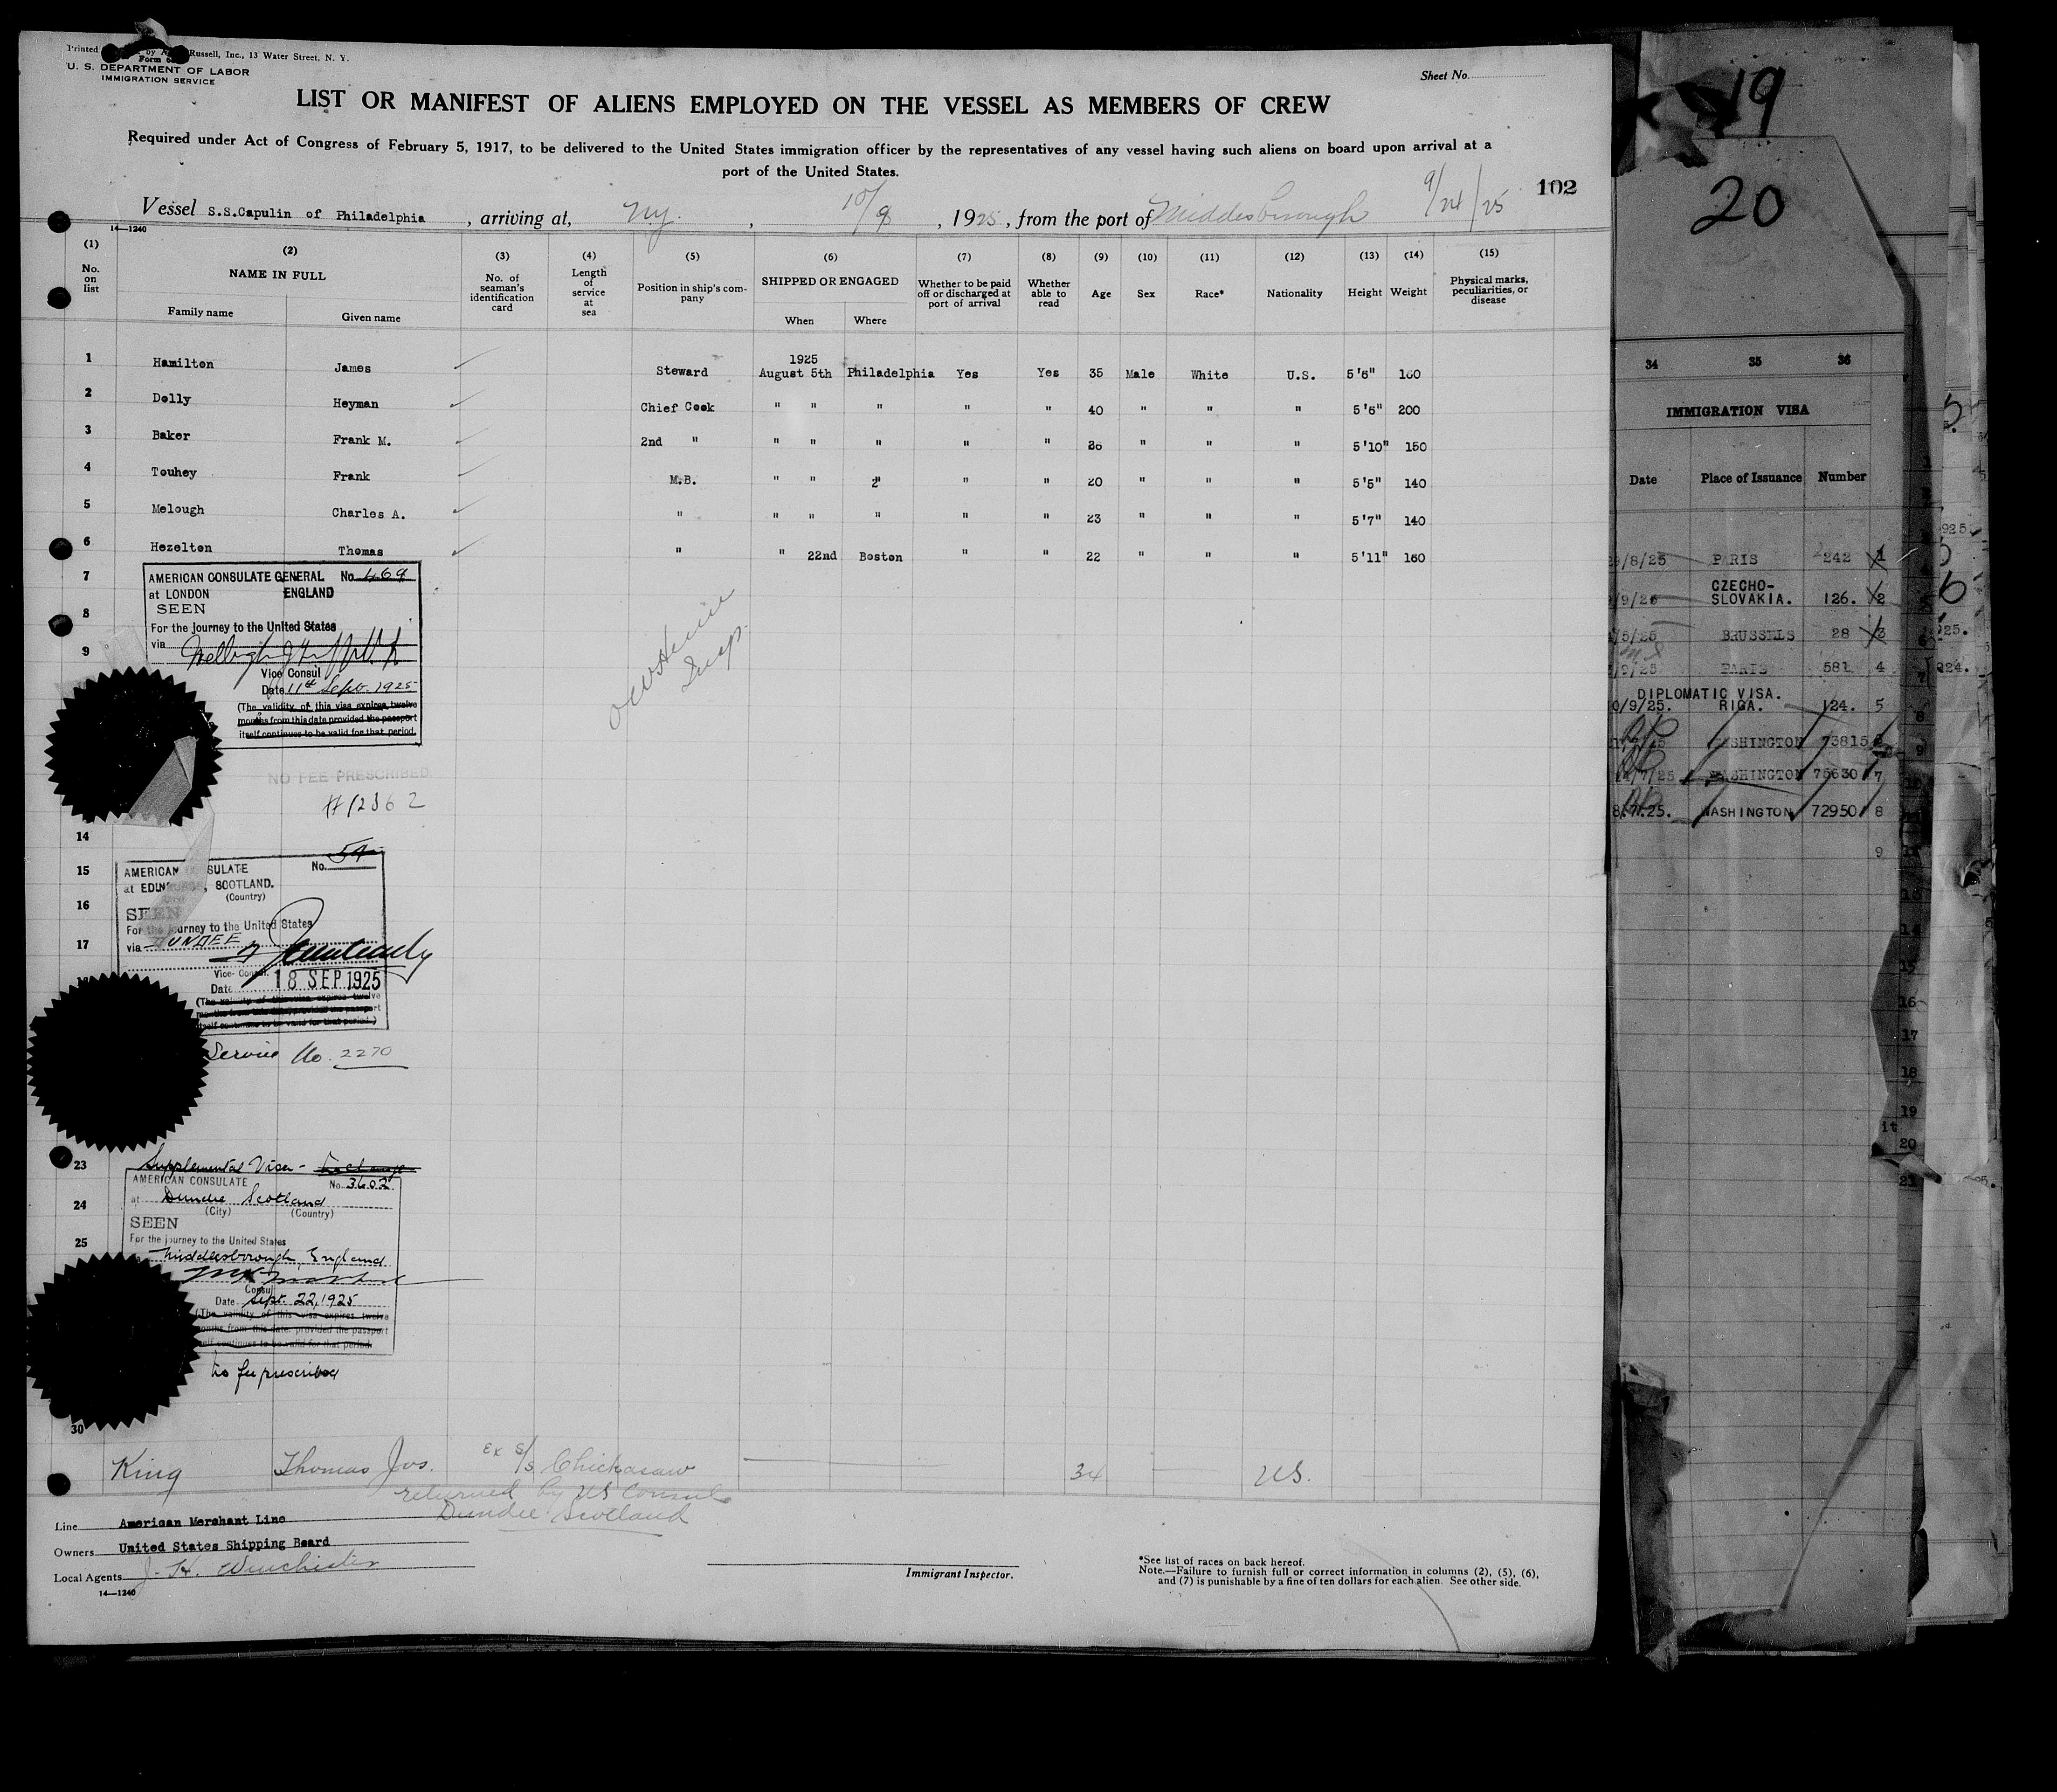 Printed by Russell, Inc., 13 Water Street, N. Y.
Form
U. S. DEPARTMENT OF LABOR
IMMIGRATION SERVICE
Sheet No.
LIST OR MANIFEST OF ALIENS EMPLOYED ON THE VESSEL AS MEMBERS OF CREW
Required under Act of Congress of February 5, 1917, to be delivered to the United States immigration officer by the representatives of any vessel having such aliens on board upon arrival at a
port of the United States.
102
Vessel S.S.Capulin of Philadelphia, arriving at, Ny., 10/8, 1925, from the port of Middesborough 9/24/25
14—1240
(1) (2) (3) (4) (5) (6) (7) (8) (9) (10) (11) (12) (13) (14) (15)
No. on list NAME IN FULL No. of seaman's identification card Length of service at sea Position in ship's company SHIPPED OR ENGAGED Whether to be paid off or discharged at port of arrival Whether able to read Age Sex Race* Nationality Height Weight Physical marks, peculiarities, or disease
Family name Given name When Where
1925
1 Hamilton James Steward August 5th Philadelphia Yes Yes 35 Male White U.S. 5'6" 160
2 Dolly Heyman Chief Cook " " " " " 40 " " " 5'6" 200
3 Baker Frank M. 2nd " " " " " " 26 " " " 5'10" 150
4 Touhey Frank M.B. " " 2" " " 20 " " " 5'5" 140
5 Melough Charles A. " " " " " " 23 " " " 5'7" 140
6 Hezelton Thomas " " 22nd Boston " " 22 " " " 5'11" 160
7
8
9
AMERICAN CONSULATE GENERAL No. 469
at LONDON ENGLAND
SEEN
For the journey to the United States
via
Vice Consul
Date 11th Sept. 1925
(The validity of this visa expires twelve
months from this date provided the passport
itself continues to be valid for that period.
Insp.
NO FEE PRESCRIBED
#12362
14
15
16
17
AMERICAN CONSULATE No. 54
at EDINBURGH, SCOTLAND.
(Country)
SEEN
For the journey to the United States
via DUNDEE
Vice-Consul.
Date 18 SEP 1925
(The validity of this visa expires twelve
months from this date provided the passport
itself continues to be valid for that period.)
Service No. 2270
23
24
25
30
Supplemental Visa -
AMERICAN CONSULATE No. 3602
at Dundee Scotland
(City) (Country)
SEEN
For the journey to the United States
Middlesborough, England
Consul
Date Sept. 22, 1925
(The validity of this visa expires twelve
months from this date. provided the passport
itself continues to be valid for that period.
No fee prescribed
King Thomas Jos. Ex S/S Chickasaw 34 U.S.
returned by US Consul
Dundee Scotland
Line American Merchant Line
Owners United States Shipping Board
Local Agents J. H. Winchester
14—1240
Immigrant Inspector.
*See list of races on back hereof.
Note.—Failure to furnish full or correct information in columns (2), (5), (6),
and (7) is punishable by a fine of ten dollars for each alien. See other side.
19
20
34 35 36
IMMIGRATION VISA
Date Place of Issuance Number
/8/25 PARIS 242 1
CZECHO-
/9/25 SLOVAKIA. 126. 2
/5/25 BRUSSELS 28 3
/9/25 PARIS 581 4
DIPLOMATIC VISA.
0/9/25. RIGA. 124. 5
WASHINGTON 73815 6
/7/25 WASHINGTON 75630 7
8.7.25. WASHINGTON 72950 8
9
13
14
15
16
17
18
19
20
21